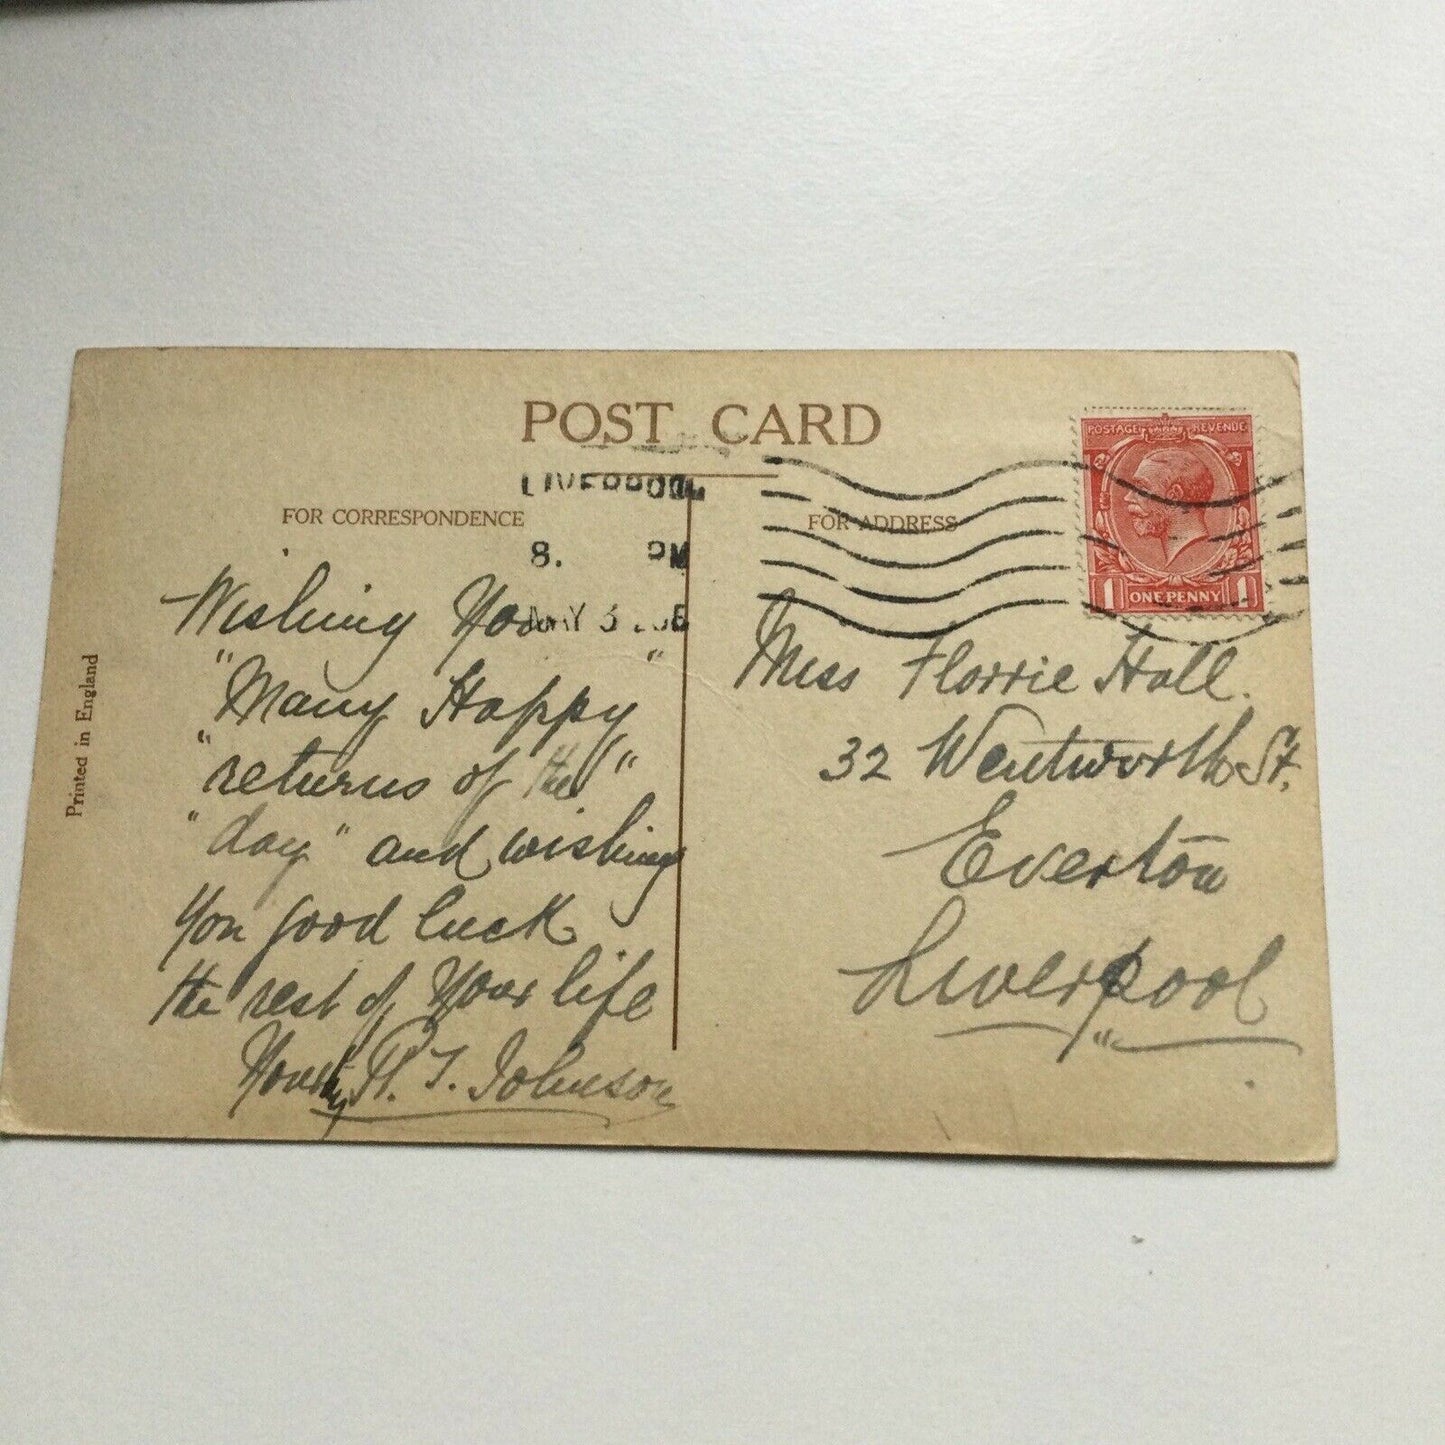 POST CARD
LIVERPOOL
8. PM
MAY 3
FOR CORRESPONDENCE
Wishing You
"Many Happy"
"returns of the"
"day" and wishing
You good luck
the rest of Your life
T. Johnson
FOR ADDRESS
POSTAGE REVENUE
1 ONE PENNY 1
Miss Florrie Hall.
32 Wentworth St.
Everton
Liverpool
Printed in England